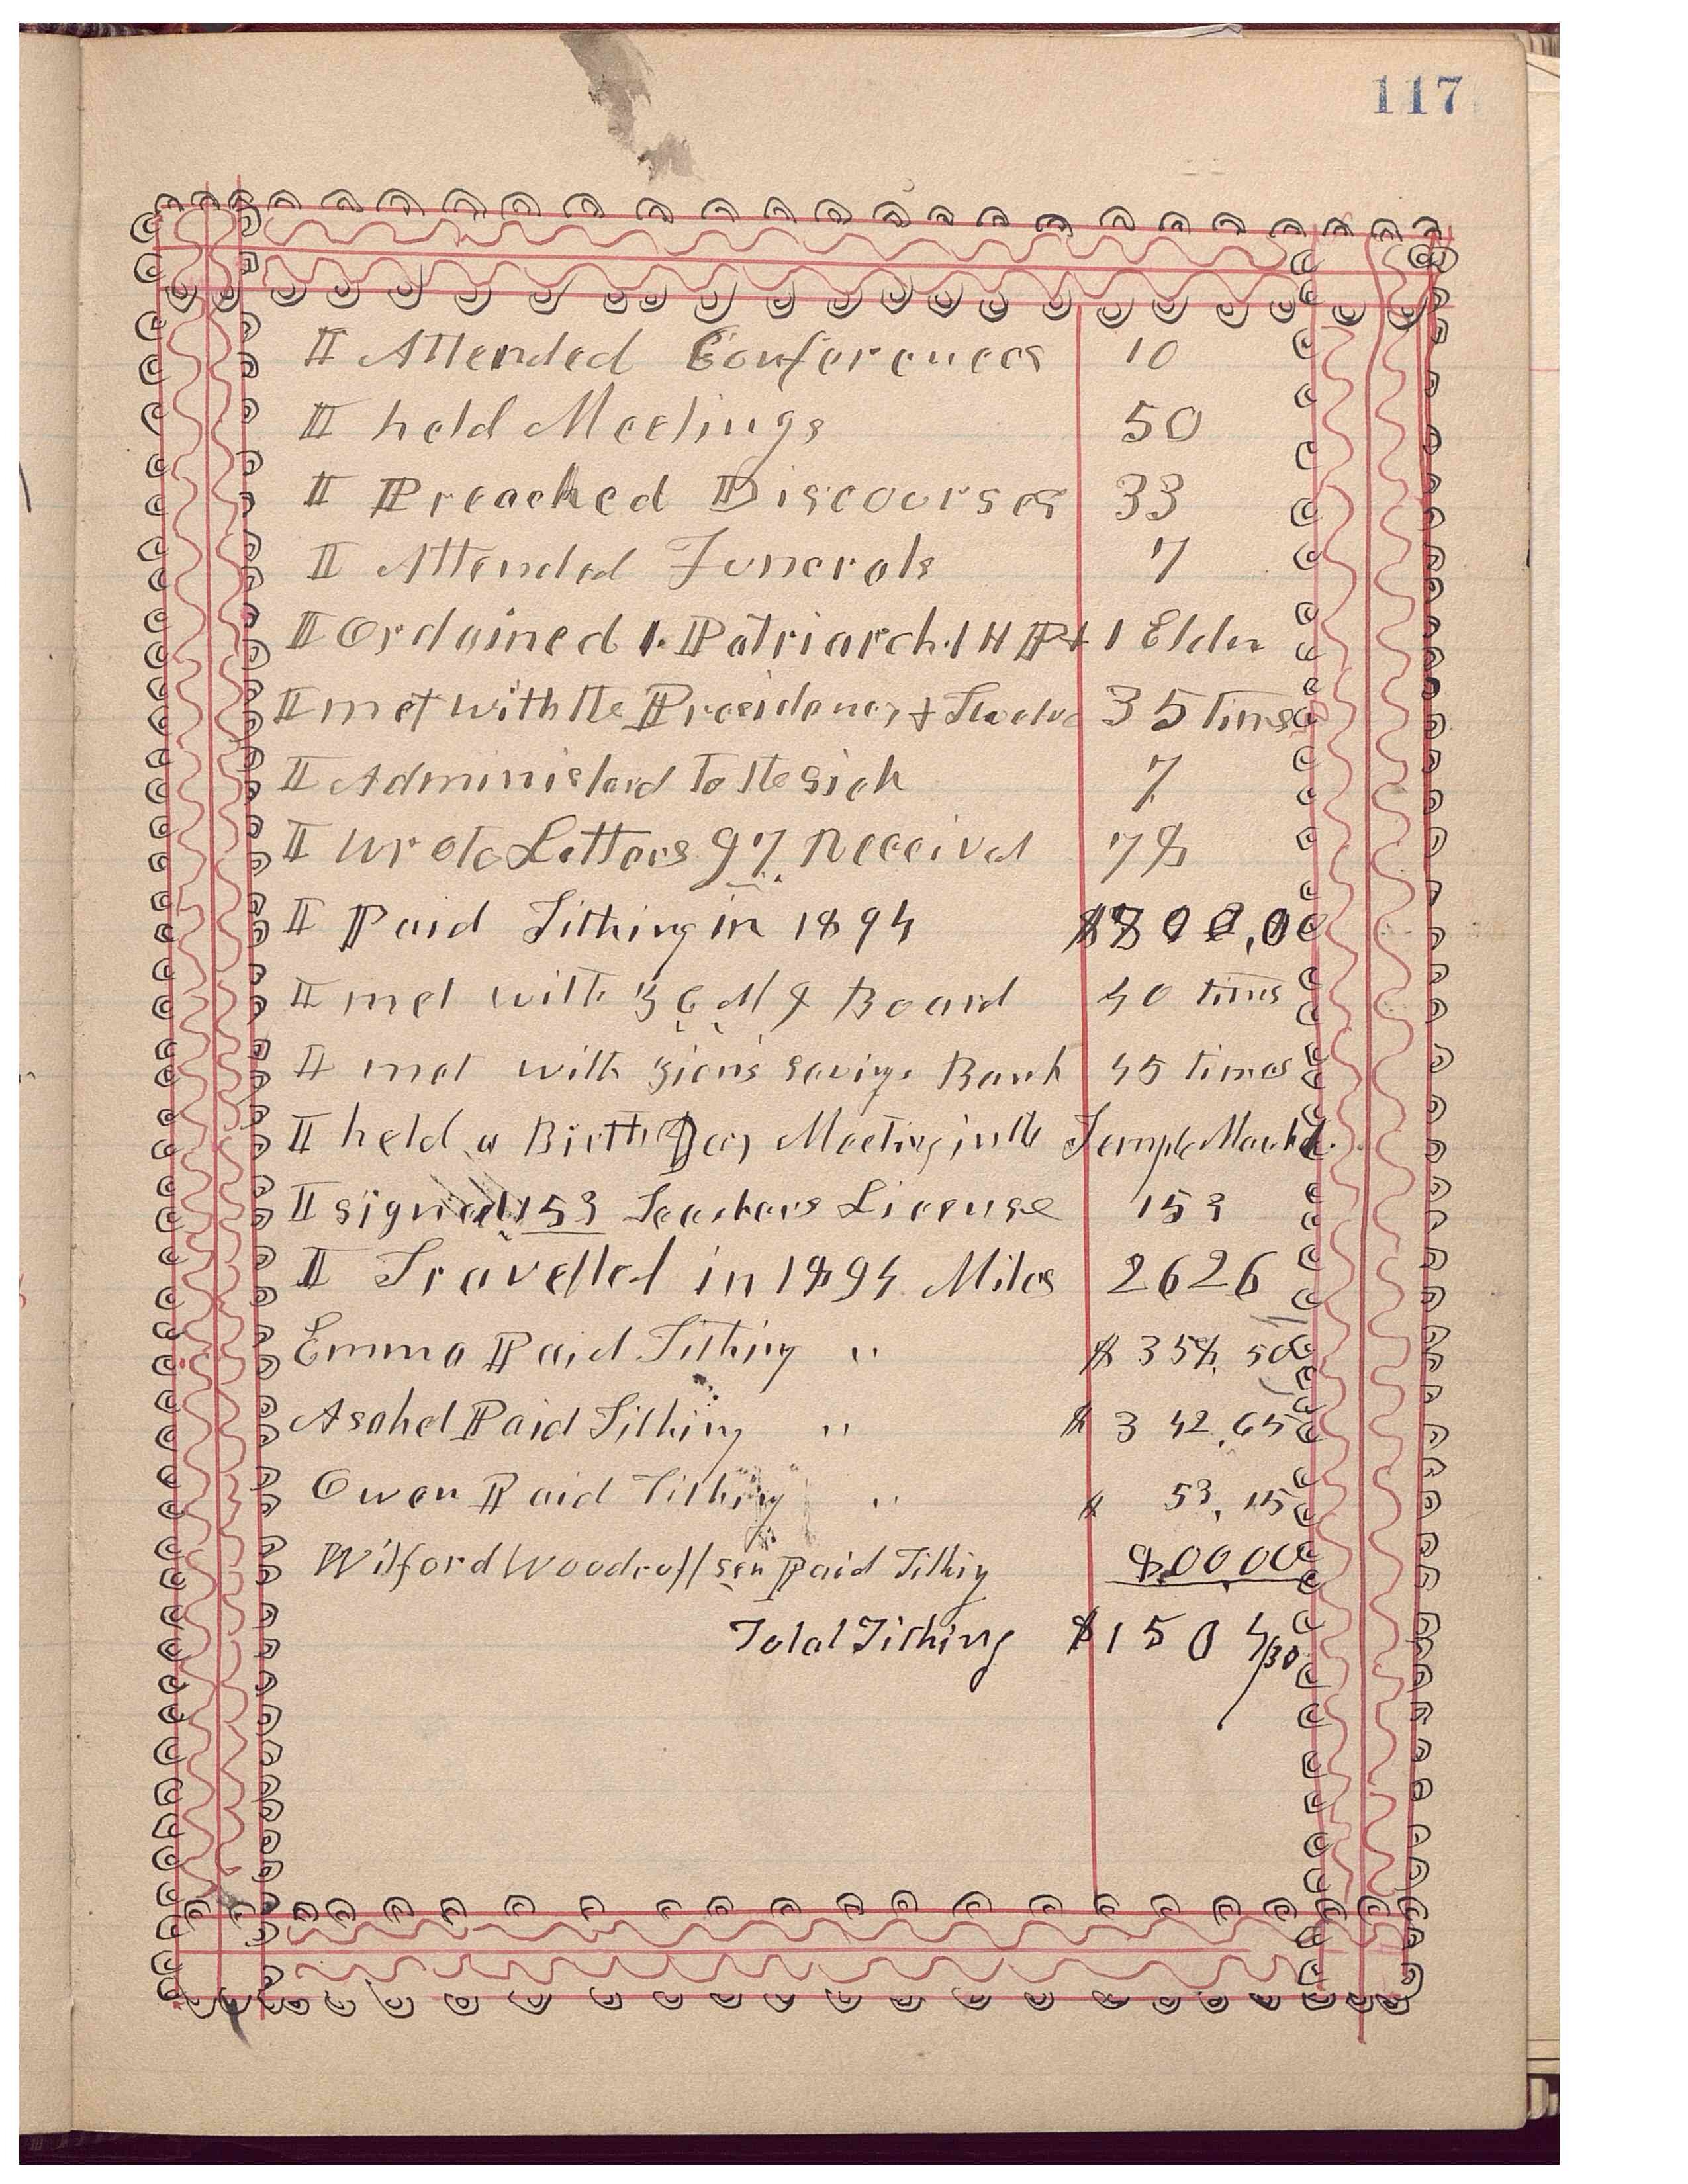 117
I Attended Conferences 10
I held Meetings 50
I Preached Discourses 33
I Attended Funerals 7
I Ordained 1 Patriarch 1 HP & 1 Elder
I met with the Presidency & Twelve 35 times
I Administerd to the sick 7
I wrote Letters 97 Received 78
I Paid Tithing in 1894 $800,00
I met with Board 40 times
I met with Zion's Savings Bank 45 times
I held a Birth Day Meeting in the Temple March 1.
I signed 153 Teachers License 153
I Travelled in 1894 Miles 2626
Emma Paid Tithing " $358.50
Asahel Paid Tithing " $342.65
Owen Paid Tithing " $53.15
Wilford Woodruff sen Paid Tithing 800.00
Total Tithing $1504/30